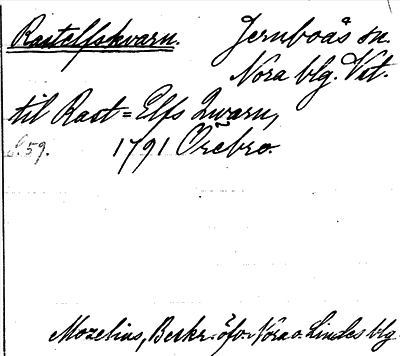 Rastelfskvarn. Jernboås sn.
Nora blg. Vst.
til Rast=Elfs Qwarn,
S. 59. 1791 Örebro.
Mozelius, Beskr. öfv. Nora o. Lindes blg